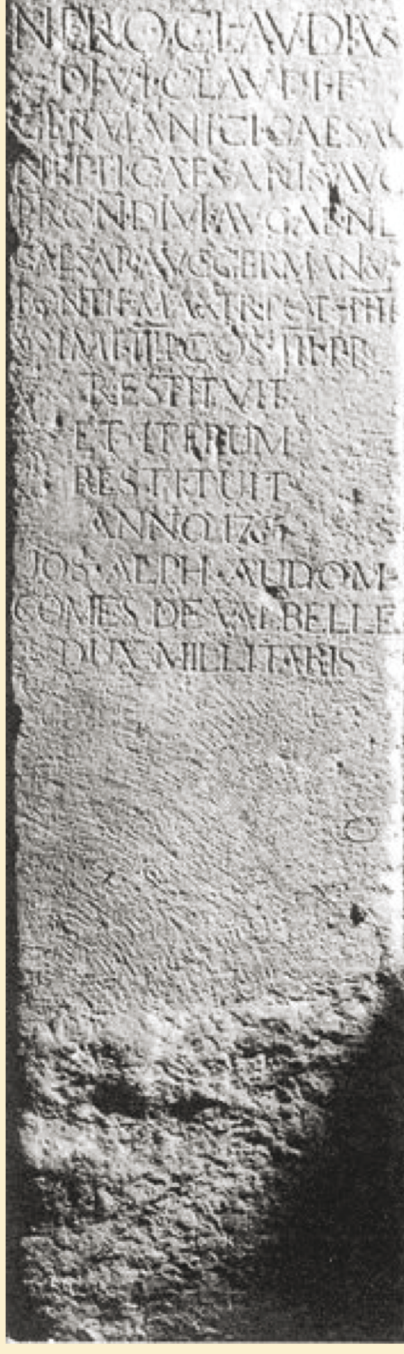 NERO·CLAVDIVS
DIVI·CLAVDI·F
GERMANICI·CAESA
NEPTI·CAESARIS·AVG
PRON·DIVI·AVG·ABNE
CAESAR·AVG·GERMAN
PONTIF·MAX·TR·POT·IIII
IMP·IIII·COS·III·PP
RESTITVIT
ET·ITERUM
RESTITUIT
ANNO
JOS·ALPH·AUDOM
COMES DE VALBELLE
DUX·MILLITARIS